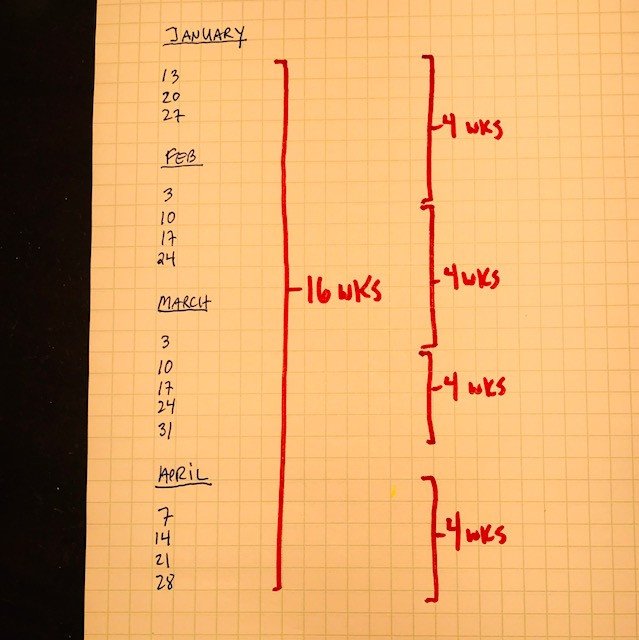 JANUARY
13
20
27
FEB
3
10
17
24
MARCH
3
10
17
24
31
APRIL
7
14
21
28
16 WKS
4 WKS
4 WKS
4 WKS
4 WKS